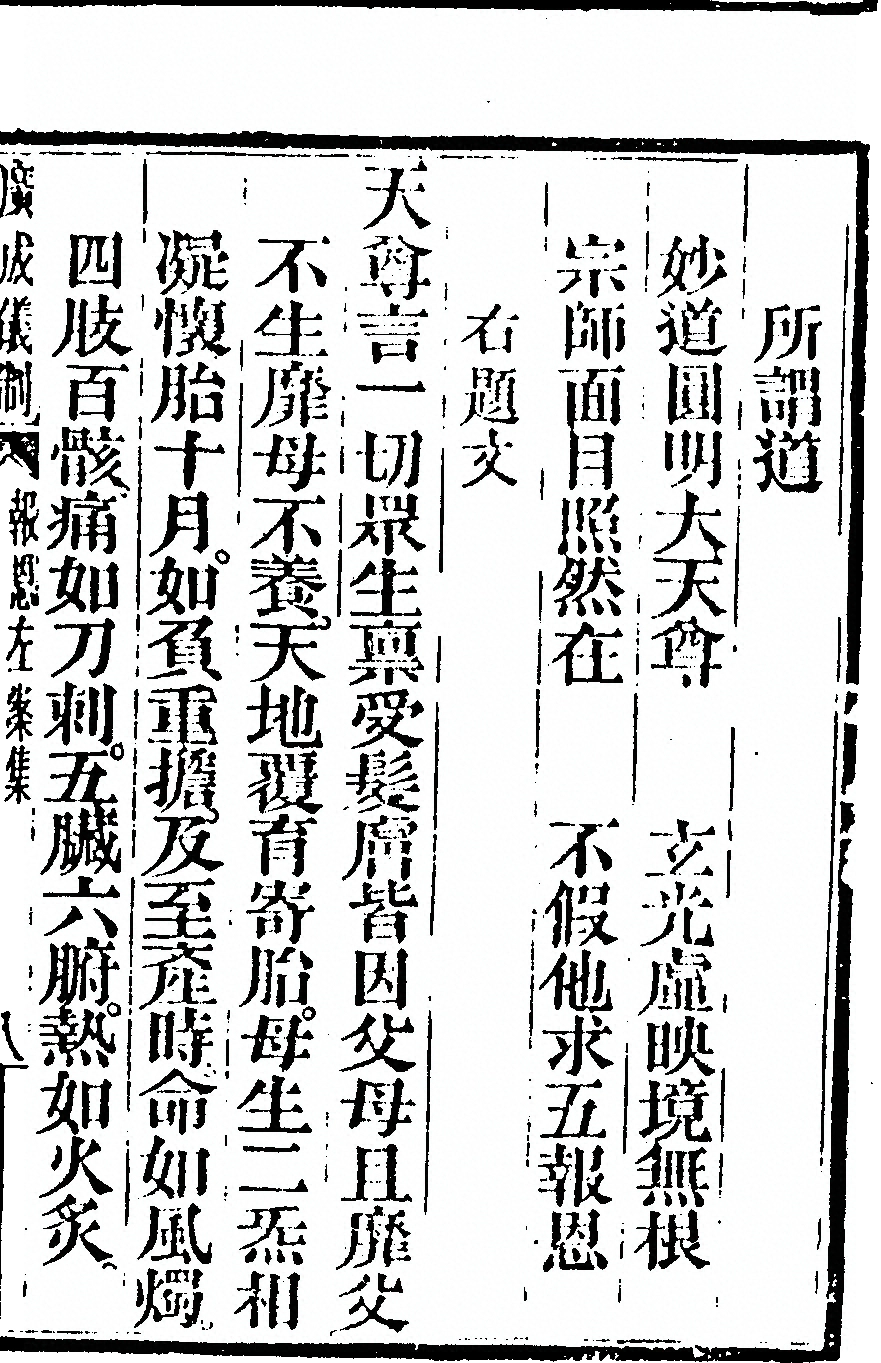 所謂道
妙道圓明大天尊　玄光虛映境無根
宗師面目照然在　不假他求五報恩
右題文
天尊言一切眾生禀受髮膚皆因父母且靡父
不生靡母不養天地覆育寄胎。母生二炁相
凝懷胎十月。如負重擔。及至產時、命如風燭。
四肢百骸、痛如刀刺。五臟六腑。熱如火炙。
廣成儀制　報恩左案集　八